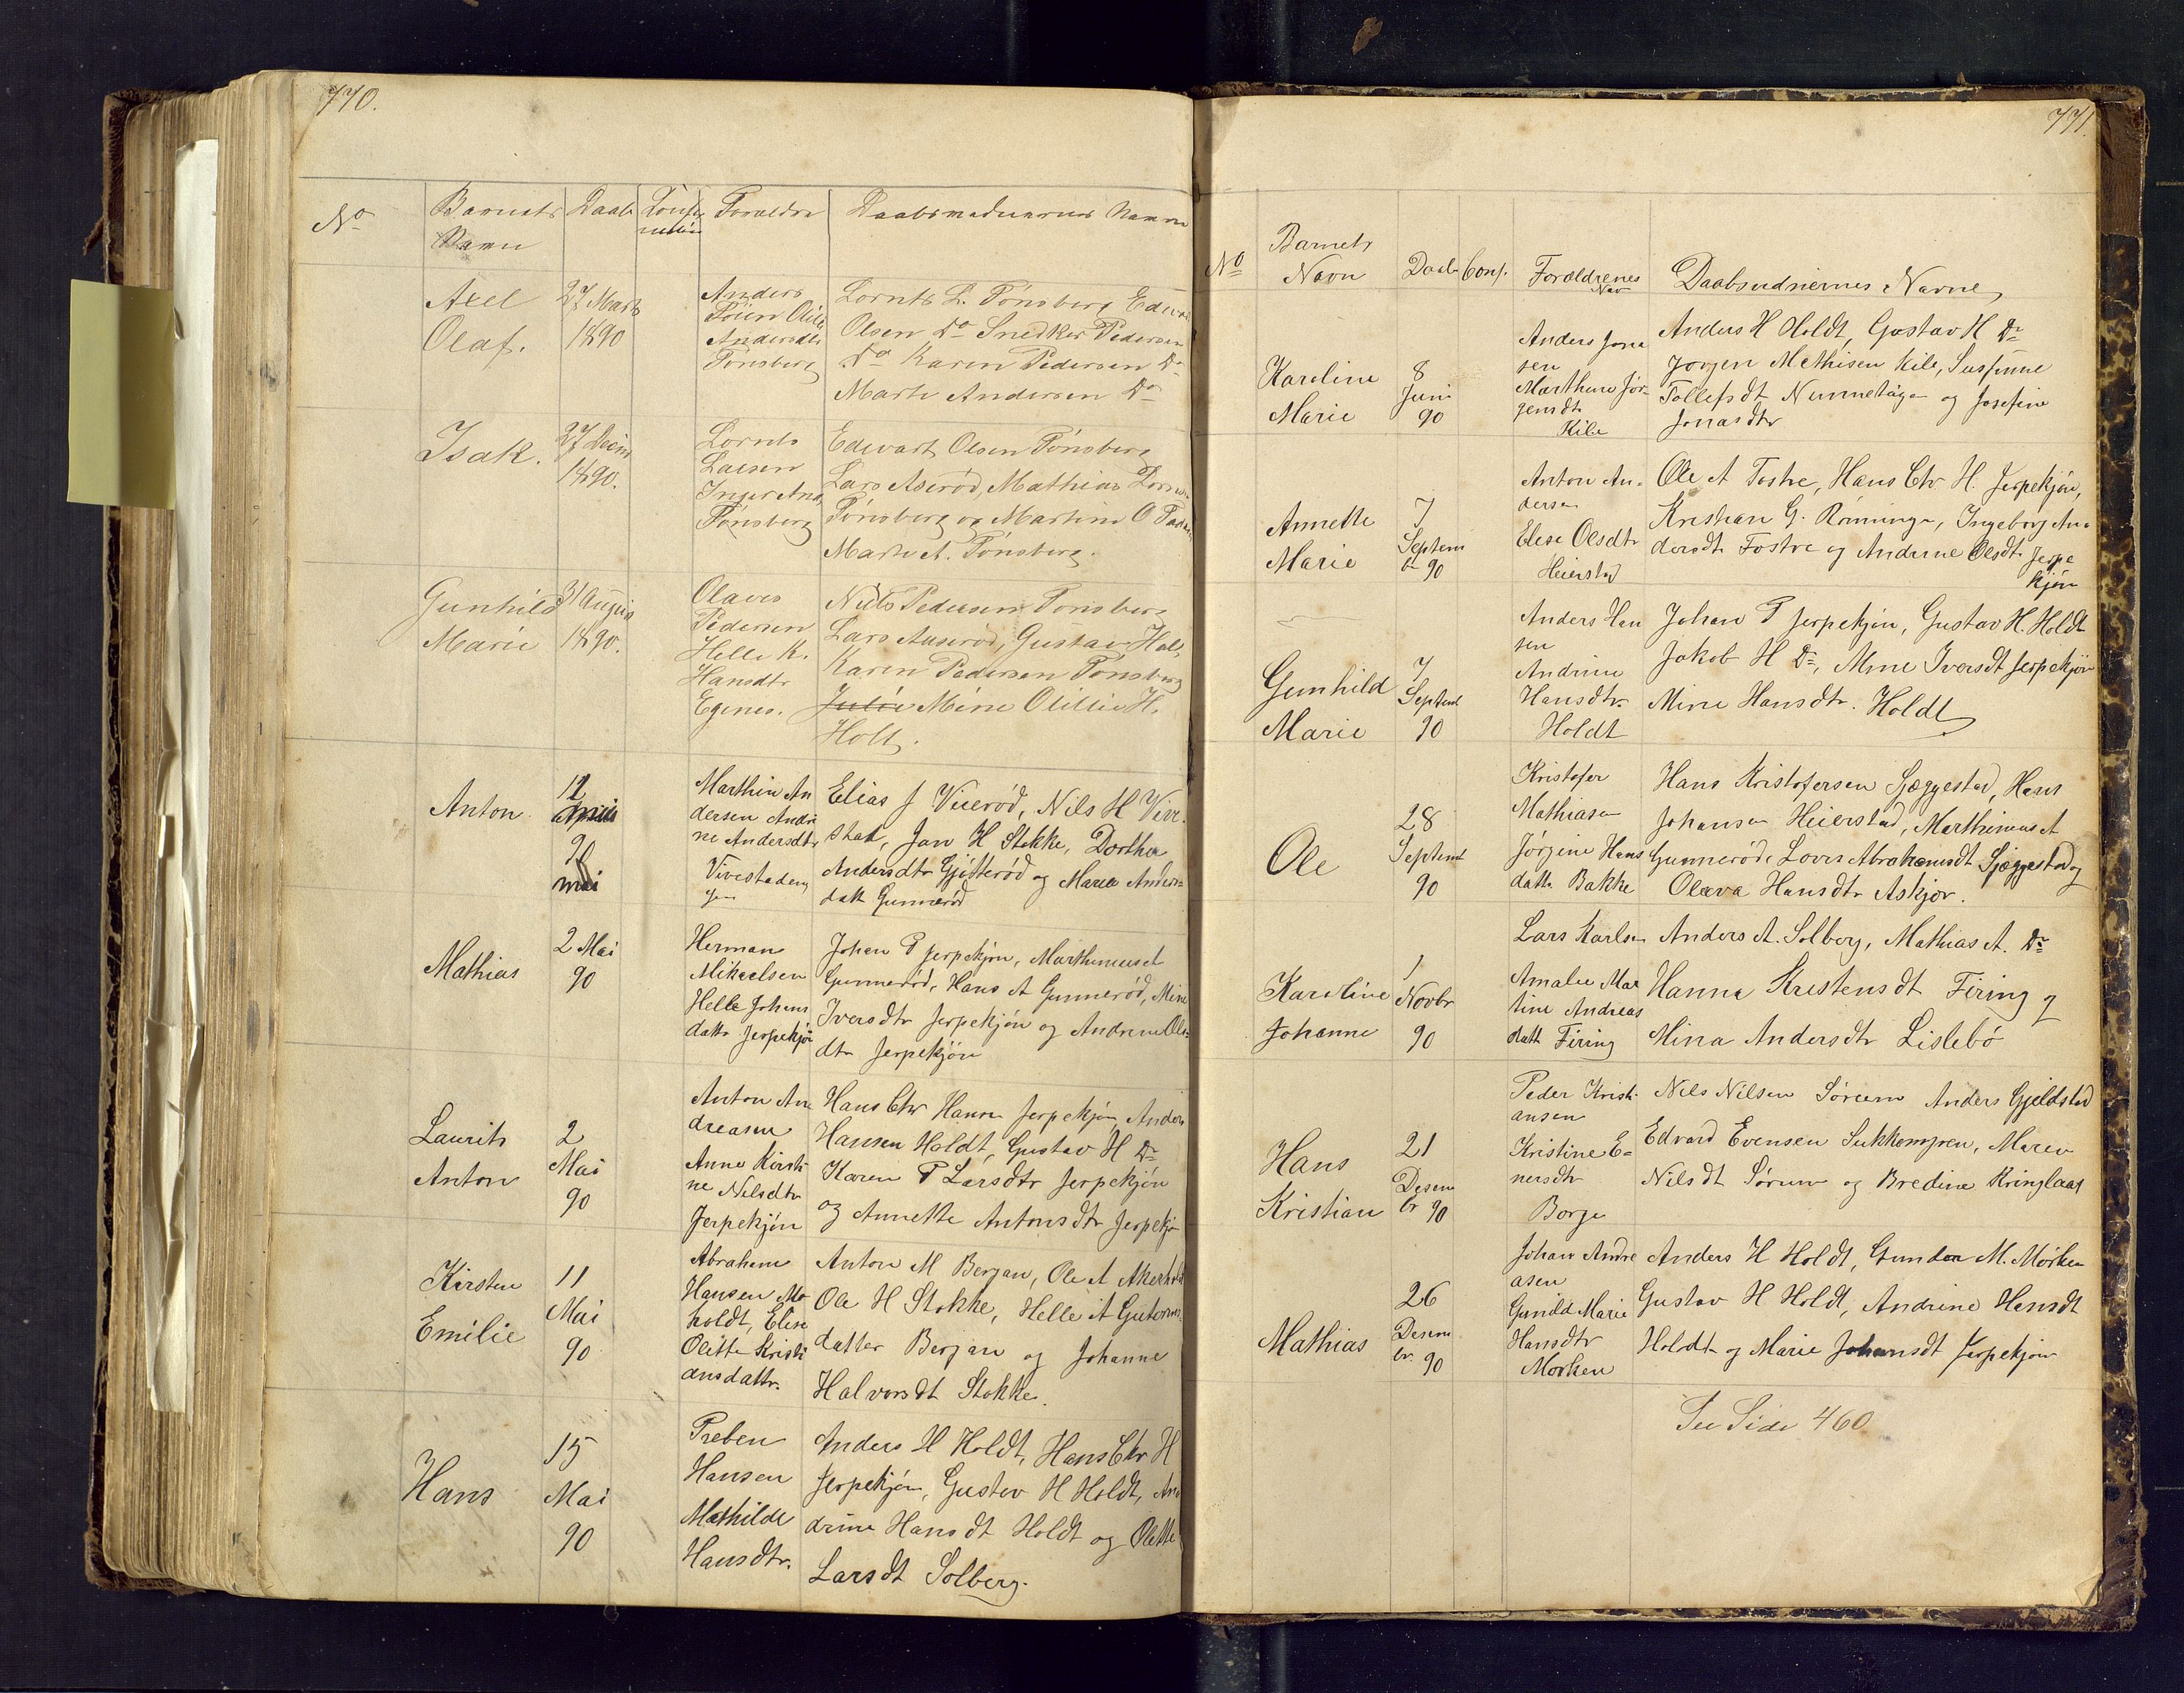 770.
No Barnets Navn Daab Foreldre Daabsvidnernes Navne
Axel Olaf. 27 Marts 1890
Anders
Andersdtr
Tønsberg
Lornts L. Tønsberg
Olsen Do Snedker Pedersen
Do Karen Pedersen Do
Marte Andersen Do
Isak. 27 Decem 1890.
Lornts
Larsen
Inger And
Tønsberg
Edvart Olsen Tønsberg
Lars Aserød, Mathias
Tønsberg og Martine O
Marte A. Tønsberg.
Gunhild Marie 31 August 1890.
Olaves
Pedersen
Helle K.
Hansdtr
Egenes.
Nils Pedersen Tønsberg
Lars Auserød, Gustav Holt
Karen Pedersen Tønsberg
Julie Mine Olillie H.
Holt.
Anton 12 April 90 mai
Marthin An
dersen Andri
ne Andersdtr
Vivestadeng
Elias J Vierød, Nils H Vive
stad, Jan H Stokke, Dorthea
Andersdtr Gjætterød og Maria Anders
datt Gunnerød
Mathias 2 Mai 90
Herman
Mikaelsen
Helle Johans
datts Jerpekjøn
Johan P Jerpekjøn, Marthinius A
Gunnerød, Hans A Gunnerød, Mine
Iversdtr Jerpekjøn og Andrine Ols
dtr Jerpekjøn
Laurits Anton 2 Mai 90
Anton An
dreasen
Anne Kirsti
ne Nilsdtr
Jerpekjøn
Hans Chr Hansen Jerpekjøn, Anders
Hansen Holdt, Gustav H Do
Karen P Larsdtr Jerpekjøn
og Annette Antonsdtr Jerpekjø
Kirsten Emilie 11 Mai 90
Abraham
Hansen Mo
holdt, Elise
Olette Kristi
ansdattr.
Anton M Berjan, Ole A Akerholt
Ole H Stokke, Helle A Guttorms
datter Berjan og Johanne
Halvorsdt Stokke.
Hans 15 Mai 90
Preben
Hansen
Mathilde
Hansdtr.
Anders H Holdt, Hans Chr H
Jerpekjøn, Gustav H Holdt, An
drine Hansdt Holdt og Olette
Larsdt Solberg.
771.
No Barnets Navn Daab Conf. Forældrenes Nav Daabsvidnernes Navne
Karoline Marie 8 Juni 90
Anders Jona
sen
Marthine Jør
gensdt
Kile
Anders H Holdt, Gustav H Do
Jørgen Mathisen Kile, Susanne
Tollefsdt Nummetige og Josefine
Jonasdtr
Annette Marie 7 Septem br 90
Anton An
dersen
Elese Olsdtr
Heierstad
Ole A Fostre, Hans Chr H. Jerpekjøn,
Kreshan G. Rønninge, Ingeborg An
dersdt Fostre og Andrine Olsdt Jerpe
kjøn
Gunhild Marie 7 Septem 90
Anders Han
sen
Andrine
Hansdtr
Holdt
Johan P Jerpekjøn, Gustav H. Holdt
Jakob H Do, Mine Iversdt Jerpekjøn
Mine Hansdtr. Holdt
Ole 28 Septem 90
Kristofer
Mathiasen
Jørgine Hans
datts Bakke
Hans Kristofersen Sjæggestad, Hans
Johansen Heierstad, Marthinius A
Gunnerød, Lovis Abrahamsdt Sjæggestad og
Oleva Hansdtr Askjør.
Karoline Johanne 1 Novbr 90
Lars Karlsen
Amalie Mar
tine Andreas
datt Firing
Anders A. Solberg, Mathias A. Do
Hanna Kristensdt Firing og
Mina Andersdtr Lislebø
Hans Kristian 21 Desem br 90
Peder Kristi
ansen
Kristine E=
nersdtr
Borge
Nils Nilsen Sørum Anders Gjeldstad
Edvard Evensen, Maren
Nilsdt Sørum og Bredine Kringlaas
Mathias 26 Desem br. 90
Johan Andre
asen
Gunild Marie
Hansdtr
Morken
Anders H Holdt, Gunder M. Morken
Gustav H Holdt, Andrine Hansdt
Holdt og Marie Johansdt Jerpekjøn
See Side 460